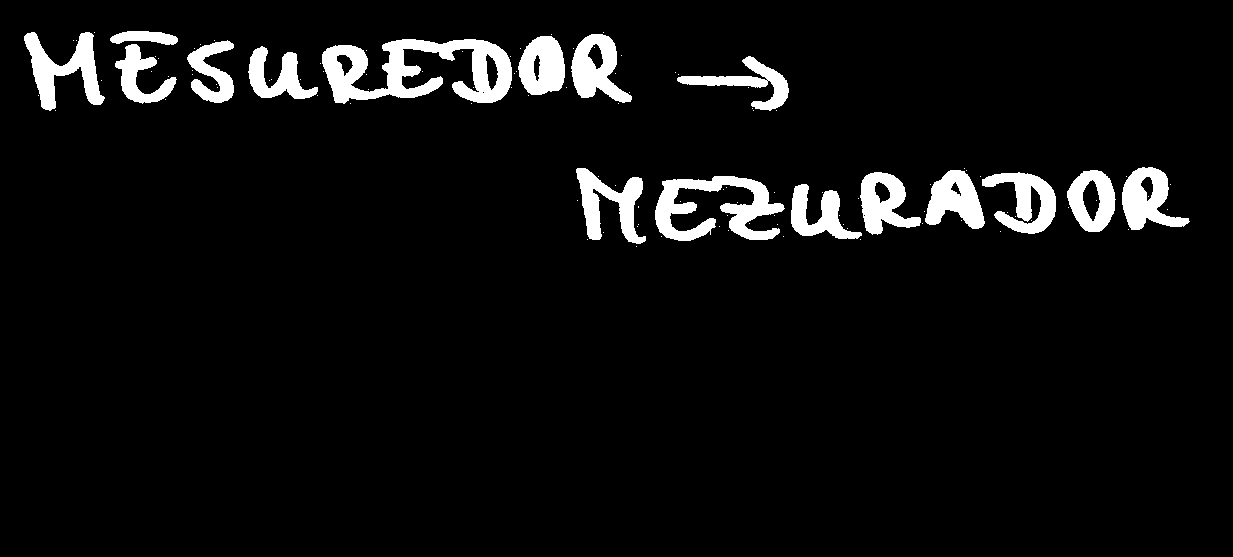 MESUREDOR →
MEZURADOR